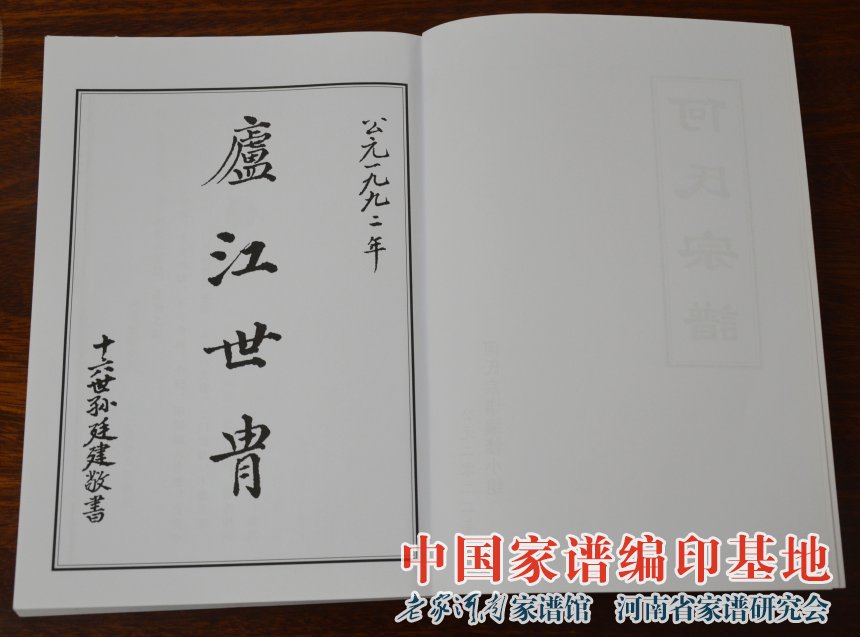 公元一九九二年
廬江世胄
十六世孫廷建敬書
何氏宗譜
中国家谱编印基地
老家河南家谱馆 河南省家谱研究会